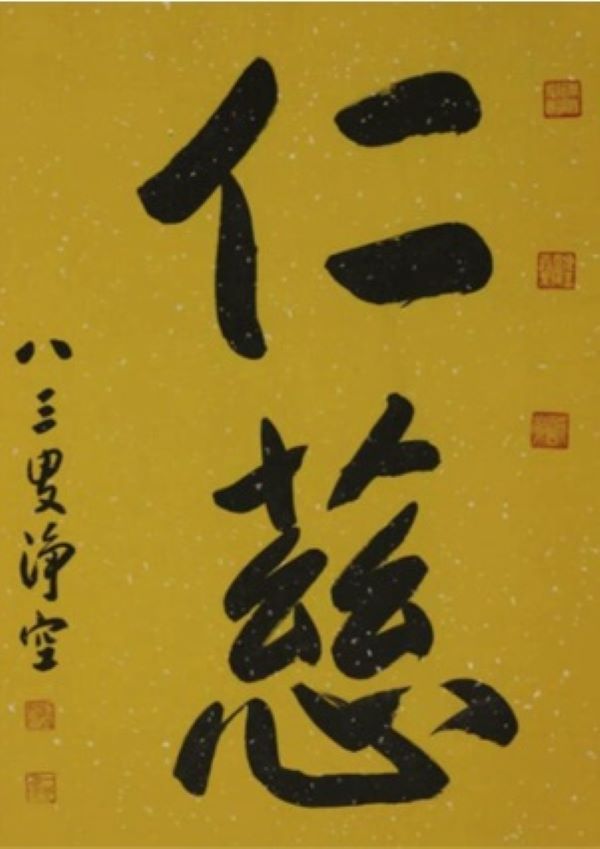 仁慈
八三叟淨空